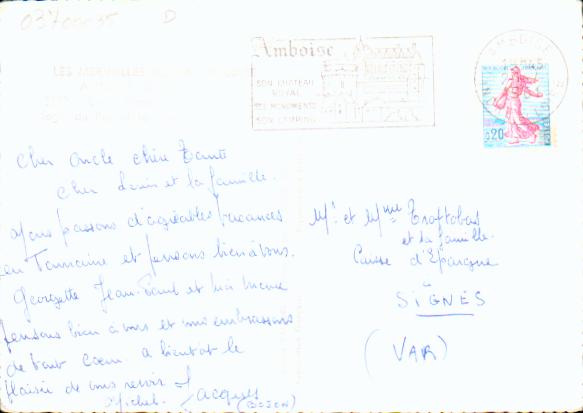 03700035 D
LES MERVEILLES
Amboise
SON CHATEAU
ROYAL
SES MONUMENTS
SON CAMPING
AMBOISE
0,20
Cher Oncle chère Tante
Cher cousin et la famille.
Nous passons d'agréables vacances
en Touraine et pensons bien à vous.
Georgette Jean-Paul et moi même
pensons bien à vous et vous embrassons
de tout cœur. A bientôt le
plaisir de vous revoir.
Michel Jacques
(BOSON)
Mr et Mme Traftobas
et la famille.
Caisse d'Epargne
à
SIGNES
(VAR)